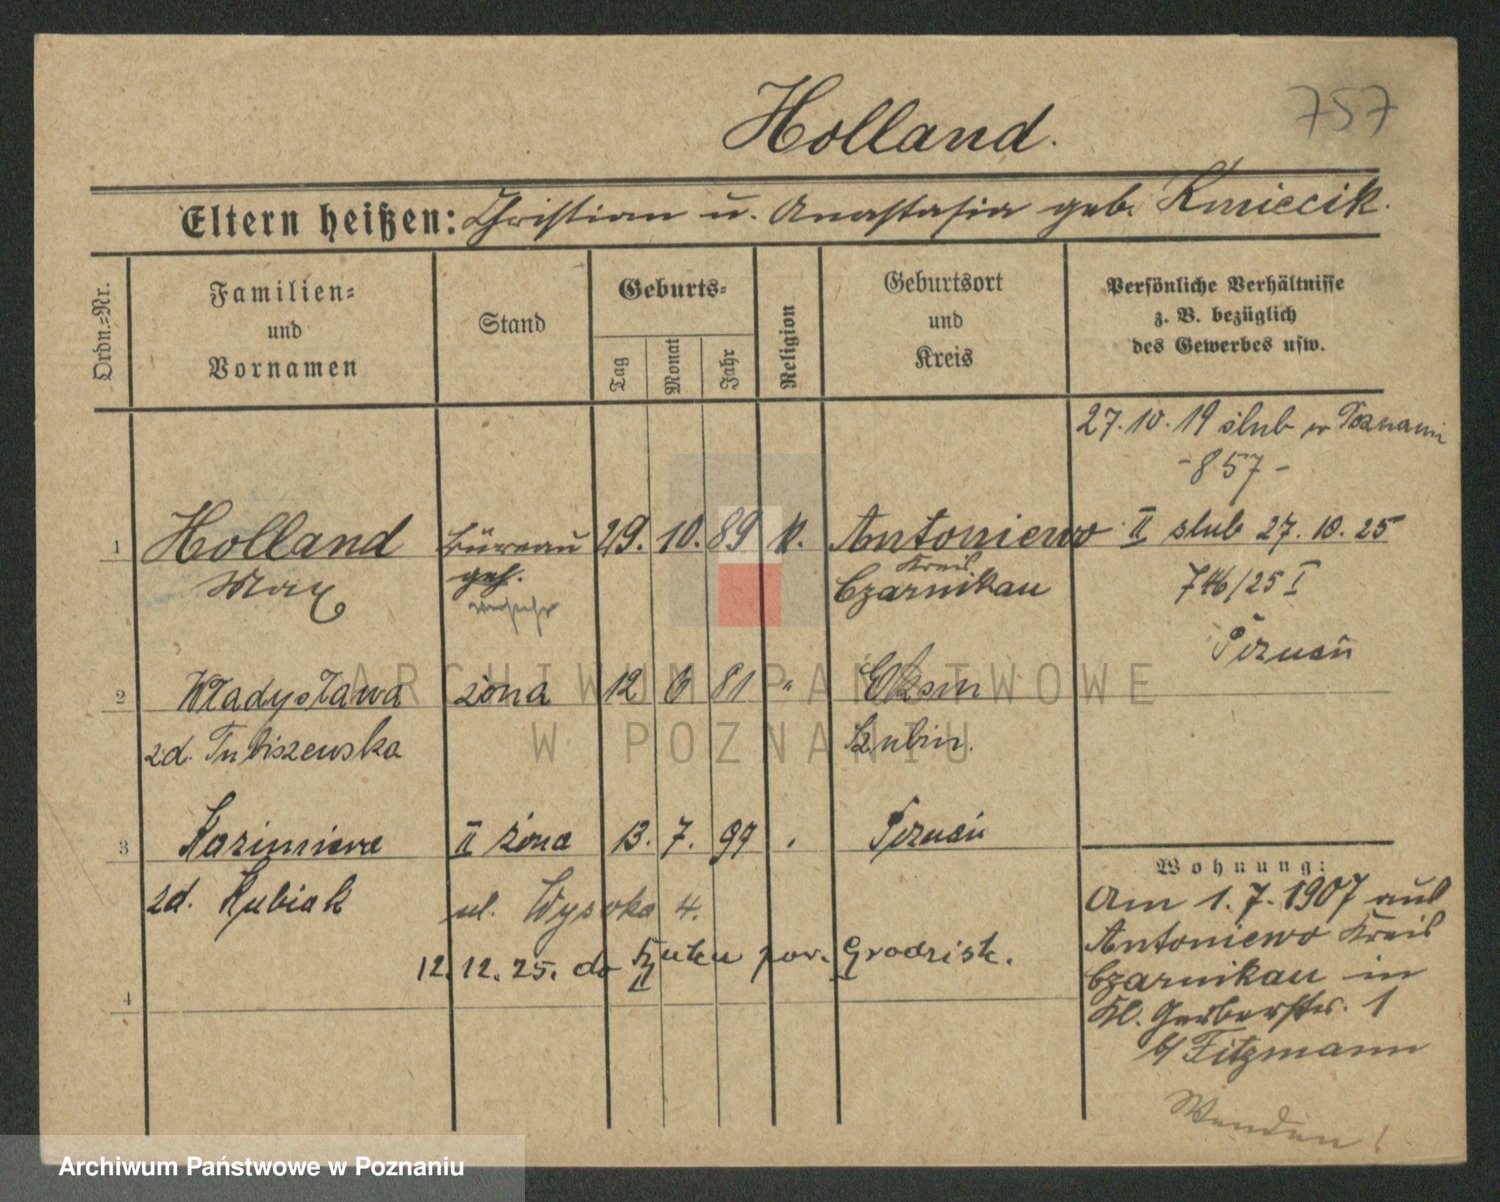 757
Holland.
Eltern heißen: Christian u. Anastasia geb. Kmiecik.
Ordn.=Nr.
Familien=
und
Vornamen
Stand
Geburts=
Tag
Monat
Jahr
Religion
Geburtsort
und
Kreis
Persönliche Verhältnisse
z. B. bezüglich
des Gewerbes usw.
27. 10. 19 slub w Poznaniu
- 857 -
1 Holland Büreau 29. 10. 89 k. Antoniewo II slub 27. 10. 25
Max geh. Kreis Czarnikau 746/25 I
Poznań
2 Władysława żona 12 6 81 " Eksin
zd. Tubiszewska Szubin.
3 Kazimiera II żona 13. 7. 99 Poznań
zd. Kubiak ul. Wysoka 4.
12. 12. 25. do pow. Grodzisk.
4
Wohnung:
Am 1. 7. 1907 aus
Antoniewo Kreis
Czarnikau in
Kl. Gerberstr. 1
b/ Fitzmann
Wenden!
ARCHIWUM PAŃSTWOWE
W POZNANIU
Archiwum Państwowe w Poznaniu